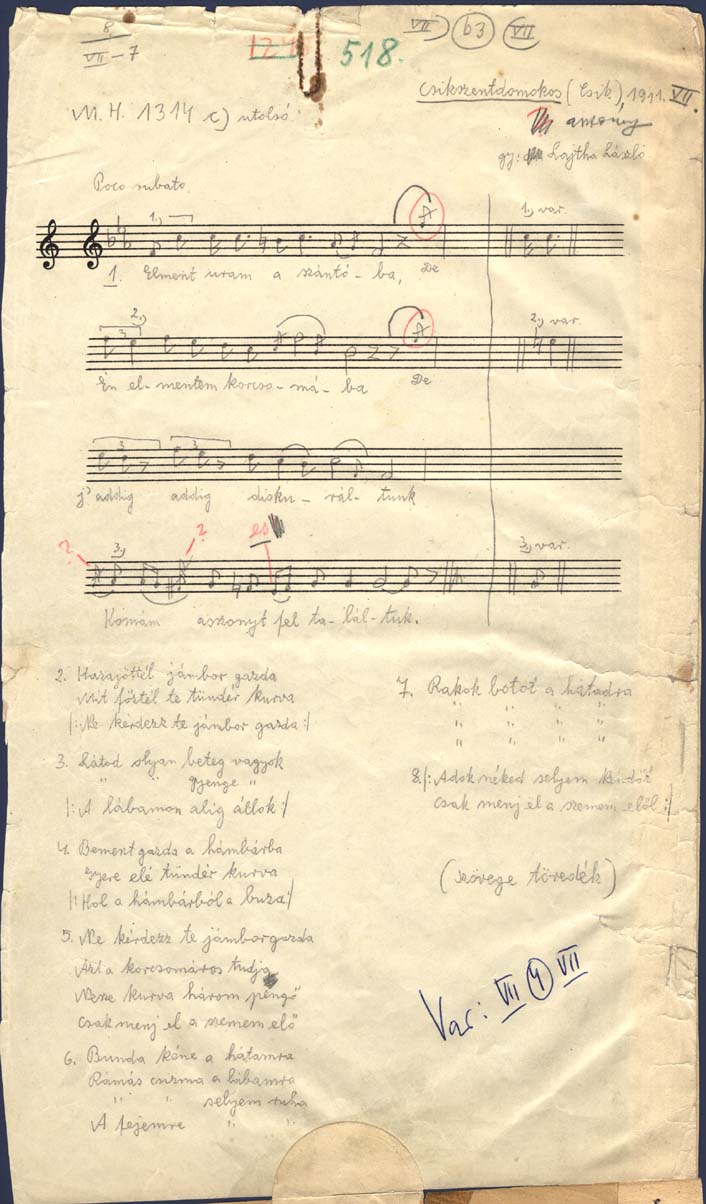 8
VII - 7
518.
VII 63 VII
Csikszentdomokos (Csik), 1911. VII.
M. H. 1314 c) utolsó
asszony
gy: Lajtha László
Poco rubato.
1, 1, var.
1. Elment uram a szántó - ba, De
2, 2, var.
3
Én el - mentem korcso - má - ba De
3 3
j' addig addig disku - rál - tunk
es
? 3, ? 3, var.
Komám aszonyt fel ta - lál - tuk.
2. Hazajöttél jámbor gazda
Mit főztél te tündér kurva
|: Ne kérdezz te jámbor gazda :|
3. Látod olyan beteg vagyok
" " gyenge "
|: A lábamon alig állok :|
4. Bement gazda a hámbárba
Gyere elé tündér kurva
|: Hol a hámbárból a buza :|
5. Ne kérdezz te jámborgazda
Azt a korcsomáros tudja
Nesze kurva három pengő
Csak menj el a szemem elő
6. Bunda kéne a hátamra
Rámás csizma a lábamra
" " selyem ruha
A fejemre " "
7. Rakok botot a hátadra
" " " "
" " " "
" " " "
8. |: Adok néked selyem kendőt
Csak menj el a szemem elől :|
(szövege töredék)
Var: VII 4 VII